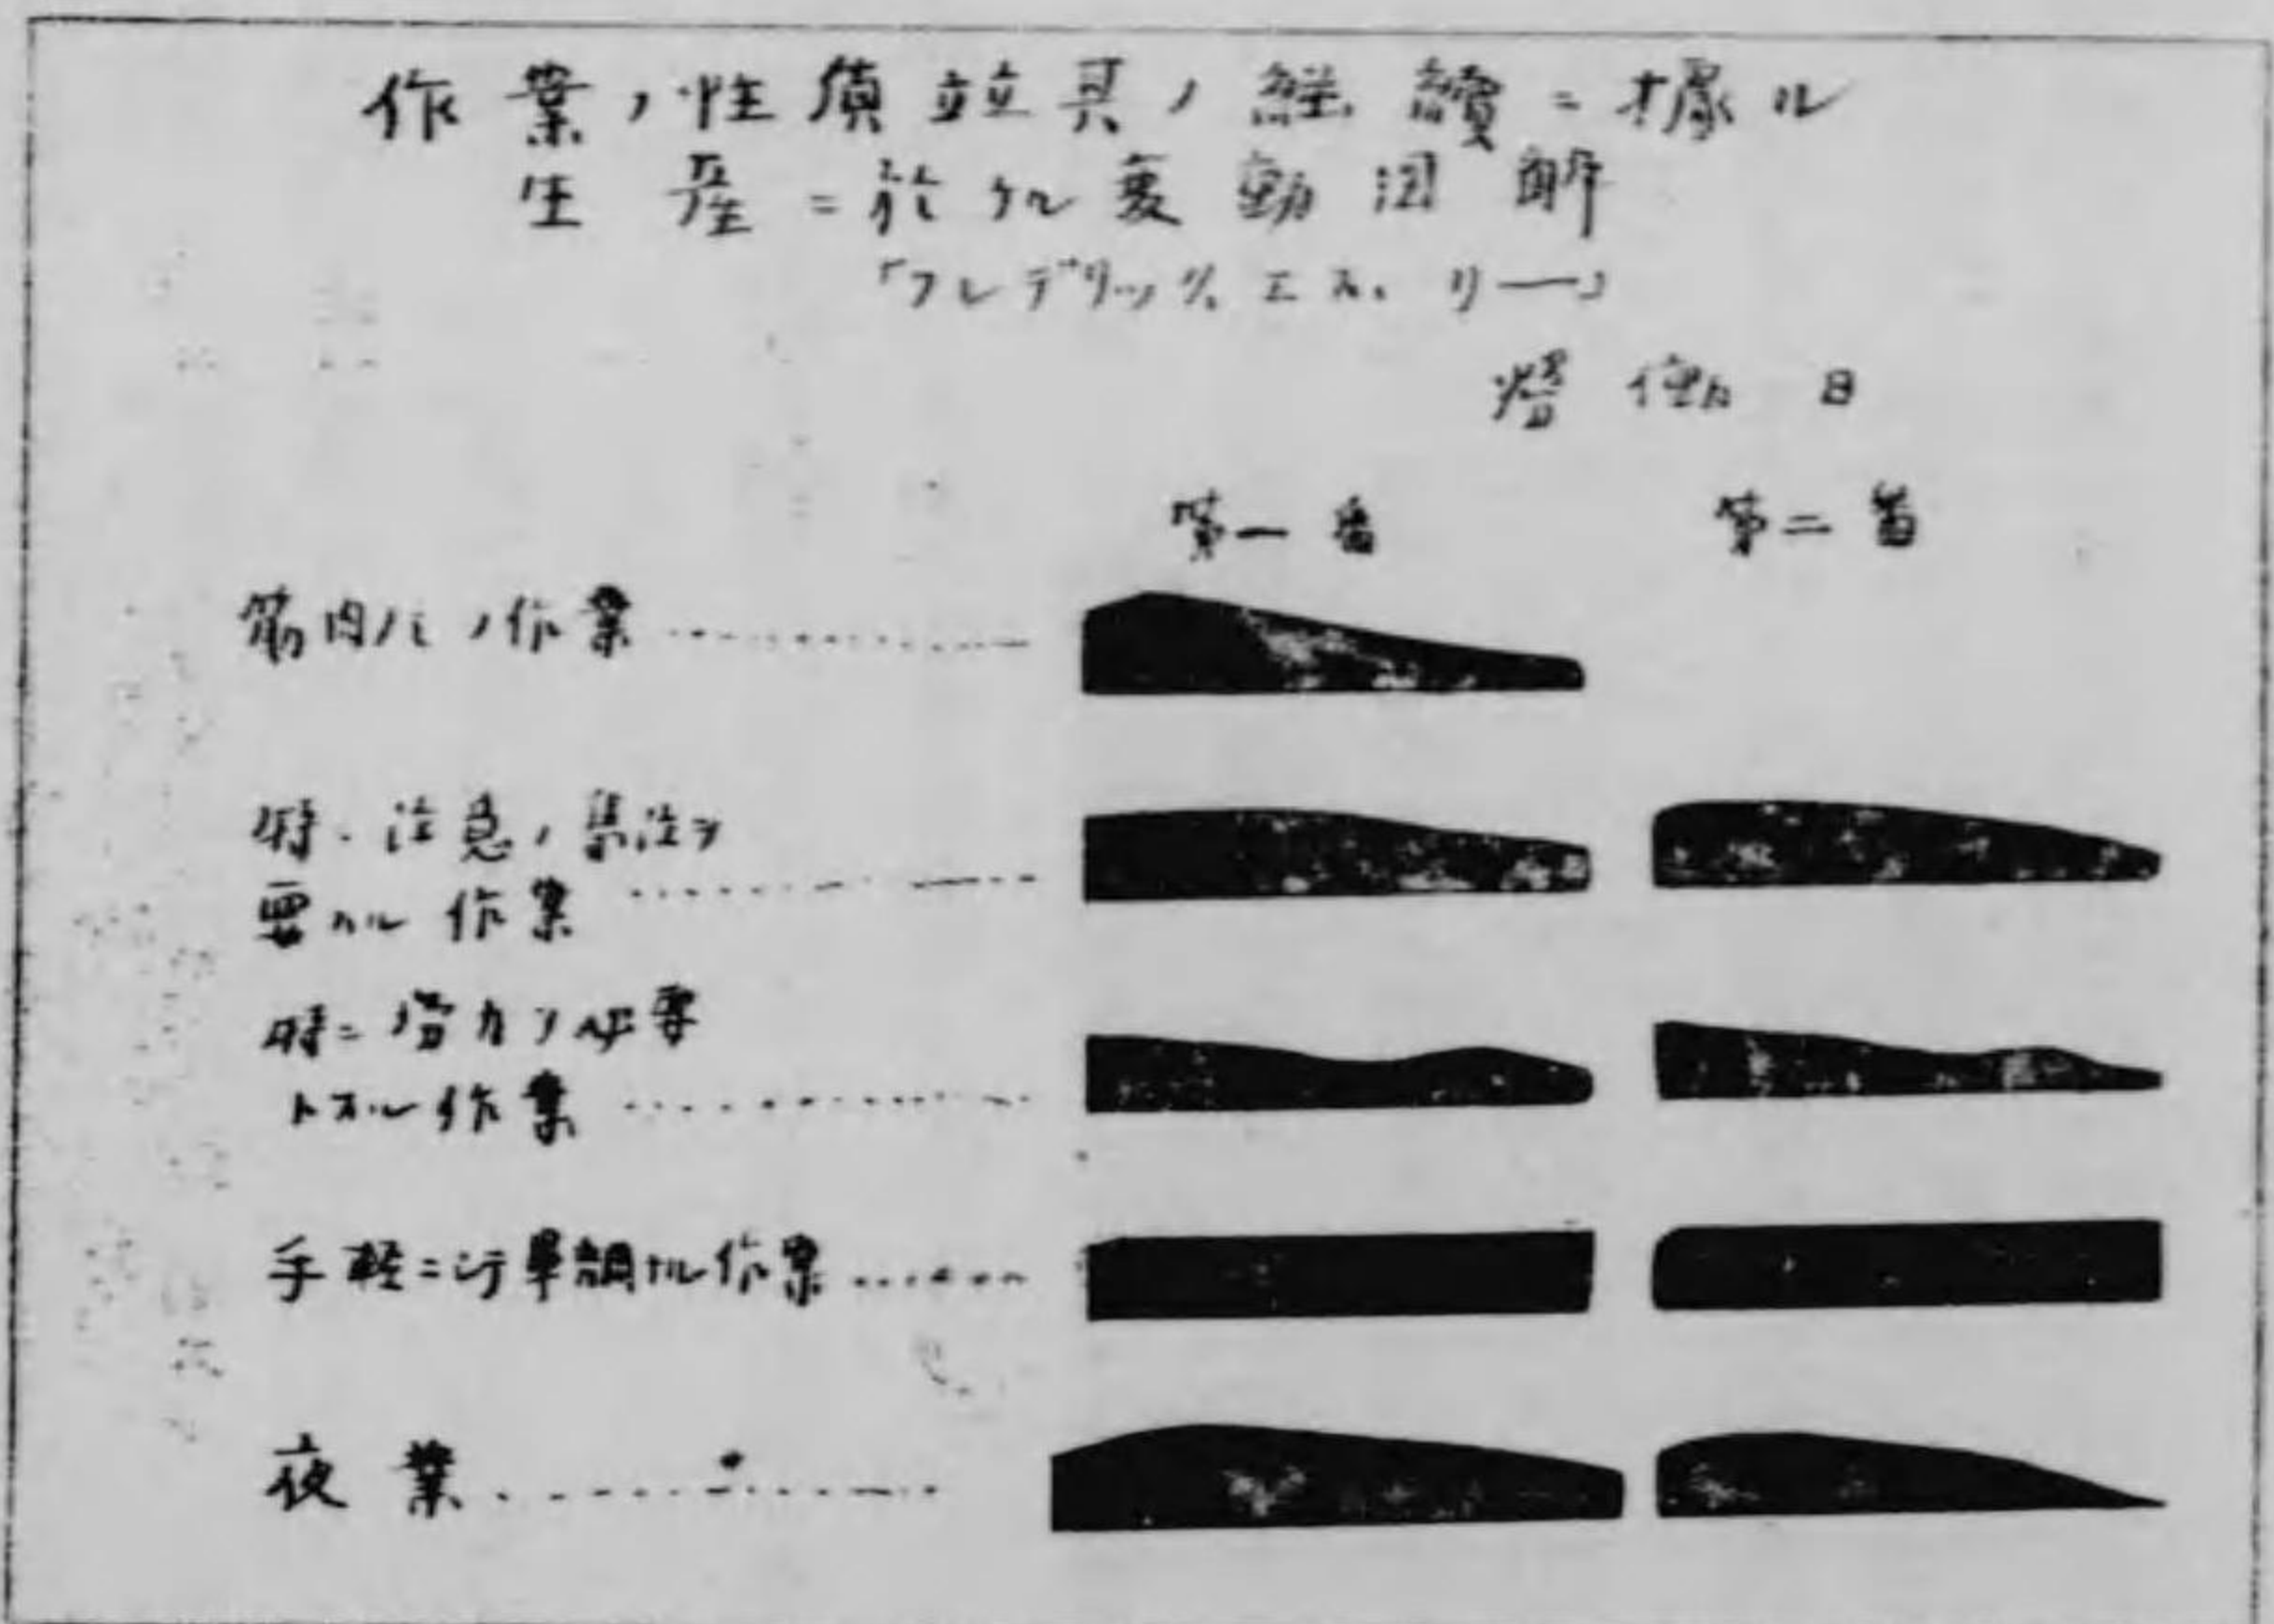 作業ノ性質並其ノ継續ニ據ル
生産ニ於ケル変動図解
「フレデリック、エス、リー」
労働日
第一番 第二番
筋肉ノミノ作業
特ニ注意ノ集注ヲ
要スル作業
特ニ労力ヲ必要
トスル作業
手軽ニシテ単調ナル作業
夜業